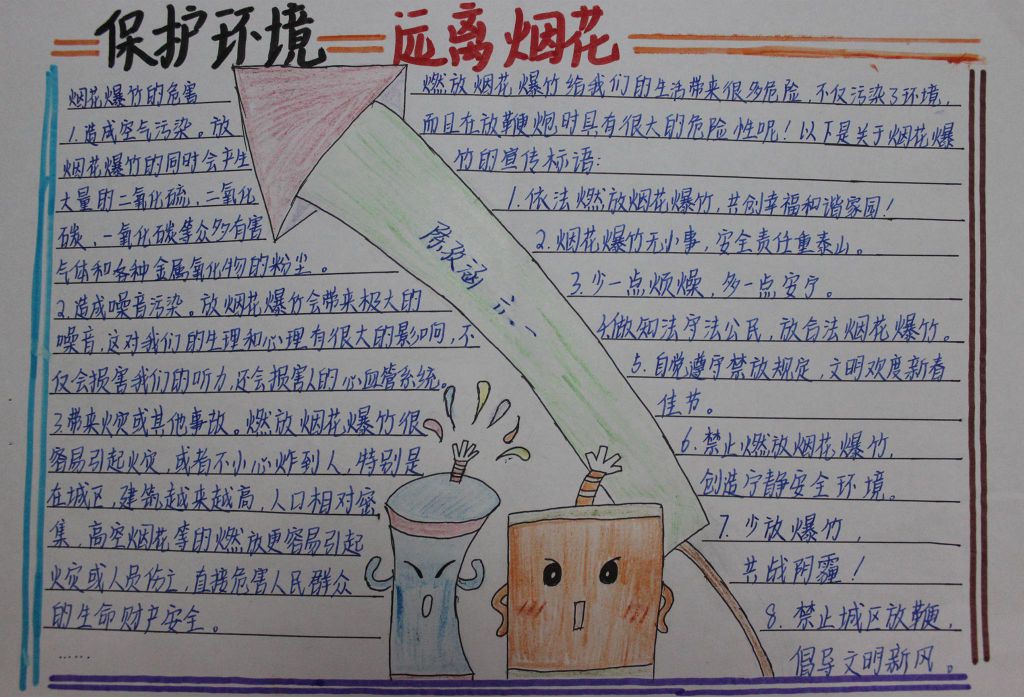 保护环境 远离烟花
烟花爆竹的危害
1.造成空气污染。放
烟花爆竹的同时会产生
大量的二氧化硫、二氧化
碳、一氧化碳等众多有害
气体和各种金属氧化物的粉尘。
2.造成噪音污染。放烟花爆竹会带来极大的
噪音,这对我们的生理和心理有很大的影响,不
仅会损害我们的听力,还会损害人的心血管系统。
3.带来火灾或其他事故。燃放烟花爆竹很
容易引起火灾,或者不小心炸到人,特别是
在城区,建筑越来越高,人口相对密
集,高空烟花等的燃放更容易引起
火灾或人员伤亡,直接危害人民群众
的生命财产安全。
……
燃放烟花爆竹给我们的生活带来很多危险,不仅污染了环境,
而且在放鞭炮时具有很大的危险性呢!以下是关于烟花爆
竹的宣传标语:
1.依法燃放烟花爆竹,共创幸福和谐家园!
2.烟花爆竹无小事,安全责任重泰山。
3.少一点烦燥,多一点安宁。
4.做知法守法公民,放合法烟花爆竹。
5.自觉遵守禁放规定,文明欢度新春
佳节。
6.禁止燃放烟花爆竹,
创造宁静安全环境。
7.少放爆竹,
共战阴霾!
8.禁止城区放鞭,
倡导文明新风。
涵 六、一